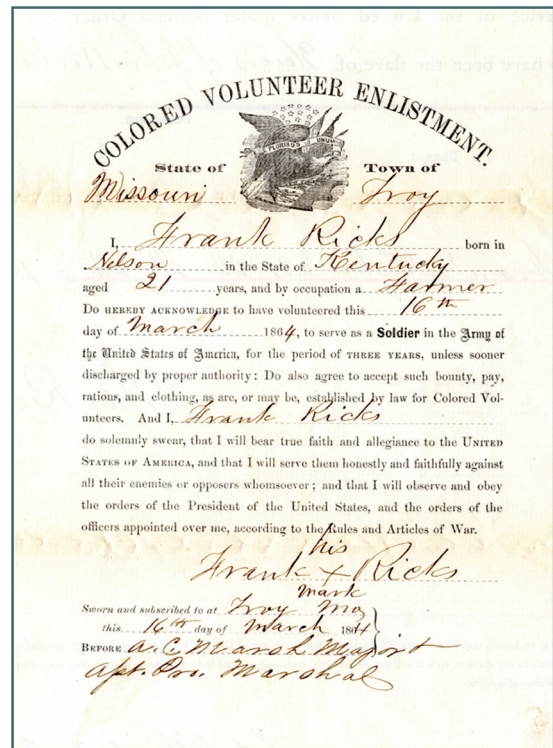 COLORED VOLUNTEER ENLISTMENT.
E PLURIBUS UNUM
State of Town of
Missouri Troy
I, Frank Ricks born in
Nelson in the State of Kentucky
aged 21 years, and by occupation a Farmer
Do HEREBY ACKNOWLEDGE to have volunteered this 16th
day of March 1864, to serve as a Soldier in the Army of
the United States of America, for the period of THREE YEARS, unless sooner
discharged by proper authority: Do also agree to accept such bounty, pay,
rations, and clothing, as are, or may be, established by law for Colored Vol-
unteers. And I, Frank Ricks
do solemnly swear, that I will bear true faith and allegiance to the UNITED
STATES OF AMERICA, and that I will serve them honestly and faithfully against
all their enemies or opposers whomsoever; and that I will observe and obey
the orders of the President of the United States, and the orders of the
officers appointed over me, according to the Rules and Articles of War.
his
Frank + Ricks
mark
Sworn and subscribed to at Troy Mo
this 16th day of March 1864
BEFORE A. C. Marsh Major &
Asst. Pro. Marshal